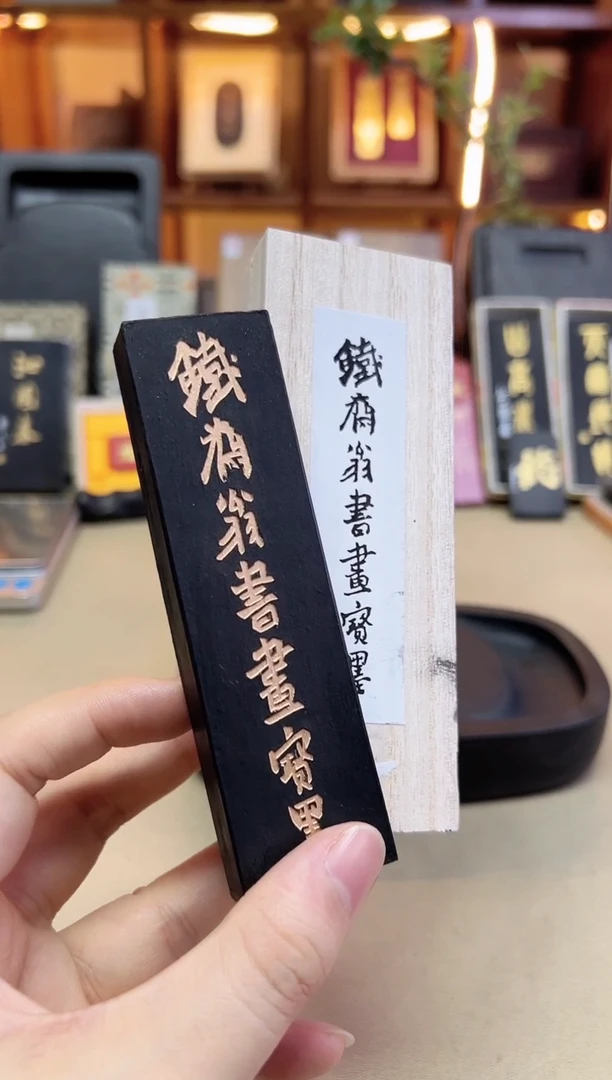 鐵齋翁書畫寳墨
鐵齋翁書畫寳墨